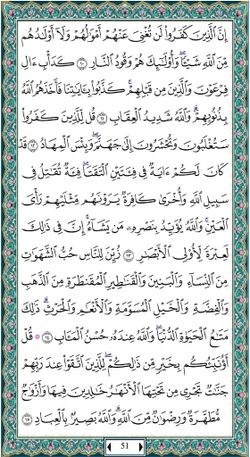 إِنَّ ٱلَّذِينَ كَفَرُوا۟ لَن تُغْنِىَ عَنْهُمْ أَمْوَٰلُهُمْ وَلَآ أَوْلَـٰدُهُم
مِّنَ ٱللَّهِ شَيْـًٔا ۖ وَأُو۟لَـٰٓئِكَ هُمْ وَقُودُ ٱلنَّارِ ١٠ كَدَأْبِ ءَالِ
فِرْعَوْنَ وَٱلَّذِينَ مِن قَبْلِهِمْ ۚ كَذَّبُوا۟ بِـَٔايَـٰتِنَا فَأَخَذَهُمُ ٱللَّهُ
بِذُنُوبِهِمْ ۗ وَٱللَّهُ شَدِيدُ ٱلْعِقَابِ ١١ قُل لِّلَّذِينَ كَفَرُوا۟
سَتُغْلَبُونَ وَتُحْشَرُونَ إِلَىٰ جَهَنَّمَ ۚ وَبِئْسَ ٱلْمِهَادُ ١٢ قَدْ
كَانَ لَكُمْ ءَايَةٌ فِى فِئَتَيْنِ ٱلْتَقَتَا ۖ فِئَةٌ تُقَـٰتِلُ فِى
سَبِيلِ ٱللَّهِ وَأُخْرَىٰ كَافِرَةٌ يَرَوْنَهُم مِّثْلَيْهِمْ رَأْىَ
ٱلْعَيْنِ ۚ وَٱللَّهُ يُؤَيِّدُ بِنَصْرِهِۦ مَن يَشَآءُ ۗ إِنَّ فِى ذَٰلِكَ
لَعِبْرَةً لِّأُو۟لِى ٱلْأَبْصَـٰرِ ١٣ زُيِّنَ لِلنَّاسِ حُبُّ ٱلشَّهَوَٰتِ
مِنَ ٱلنِّسَآءِ وَٱلْبَنِينَ وَٱلْقَنَـٰطِيرِ ٱلْمُقَنطَرَةِ مِنَ ٱلذَّهَبِ
وَٱلْفِضَّةِ وَٱلْخَيْلِ ٱلْمُسَوَّمَةِ وَٱلْأَنْعَـٰمِ وَٱلْحَرْثِ ۗ ذَٰلِكَ
مَتَـٰعُ ٱلْحَيَوٰةِ ٱلدُّنْيَا ۖ وَٱللَّهُ عِندَهُۥ حُسْنُ ٱلْمَـَٔابِ ١٤ قُلْ
أَؤُنَبِّئُكُم بِخَيْرٍ مِّن ذَٰلِكُمْ ۚ لِلَّذِينَ ٱتَّقَوْا۟ عِندَ رَبِّهِمْ
جَنَّـٰتٌ تَجْرِى مِن تَحْتِهَا ٱلْأَنْهَـٰرُ خَـٰلِدِينَ فِيهَا وَأَزْوَٰجٌ
مُّطَهَّرَةٌ وَرِضْوَٰنٌ مِّنَ ٱللَّهِ ۗ وَٱللَّهُ بَصِيرٌۢ بِٱلْعِبَادِ ١٥
51